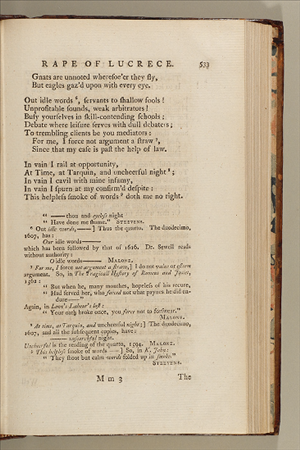 RAPE OF LUCRECE. 533
Gnats are unnoted wheresoe'er they fly,
But eagles gaz'd upon with every eye.
Out idle words ⁸, servants to shallow fools!
Unprofitable sounds, weak arbitrators!
Busy yourselves in skill-contending schools;
Debate where leisure serves with dull debaters;
To trembling clients be you mediators:
For me, I force not argument a straw ⁹,
Since that my case is past the help of law.
In vain I rail at opportunity,
At Time, at Tarquin, and uncheerful night ¹;
In vain I cavil with mine infamy,
In vain I spurn at my confirm'd despite:
This helpless smoke of words ² doth me no right.
" —— thou and eyeless night
" Have done me shame." STEEVENS.
⁸ Out idle words, ——] Thus the quarto. The duodecimo,
1607, has:
Our idle words ——
which has been followed by that of 1616. Dr. Sewell reads
without authority:
O idle words —— MALONE.
⁹ For me, I force not argument a straw,] I do not value or esteem
argument. So, in The Tragicall Hystory of Romeus and Juliet,
1562:
" But when he, many monthes, hopeless of his recure,
" Had served her, who forced not what paynes he did en-
dure ——"
Again, in Love's Labour's lost:
" Your oath broke once, you force not to forswear."
MALONE.
¹ At time, at Tarquin, and uncheerful night;] The duodecimo,
1607, and all the subsequent copies, have:
—— unsearchful night.
Uncheerful is the reading of the quarto, 1594. MALONE.
² This helpless smoke of words ——] So, in K. John:
" They shoot but calm words folded up in smoke."
STEEVENS.
M m 3 The